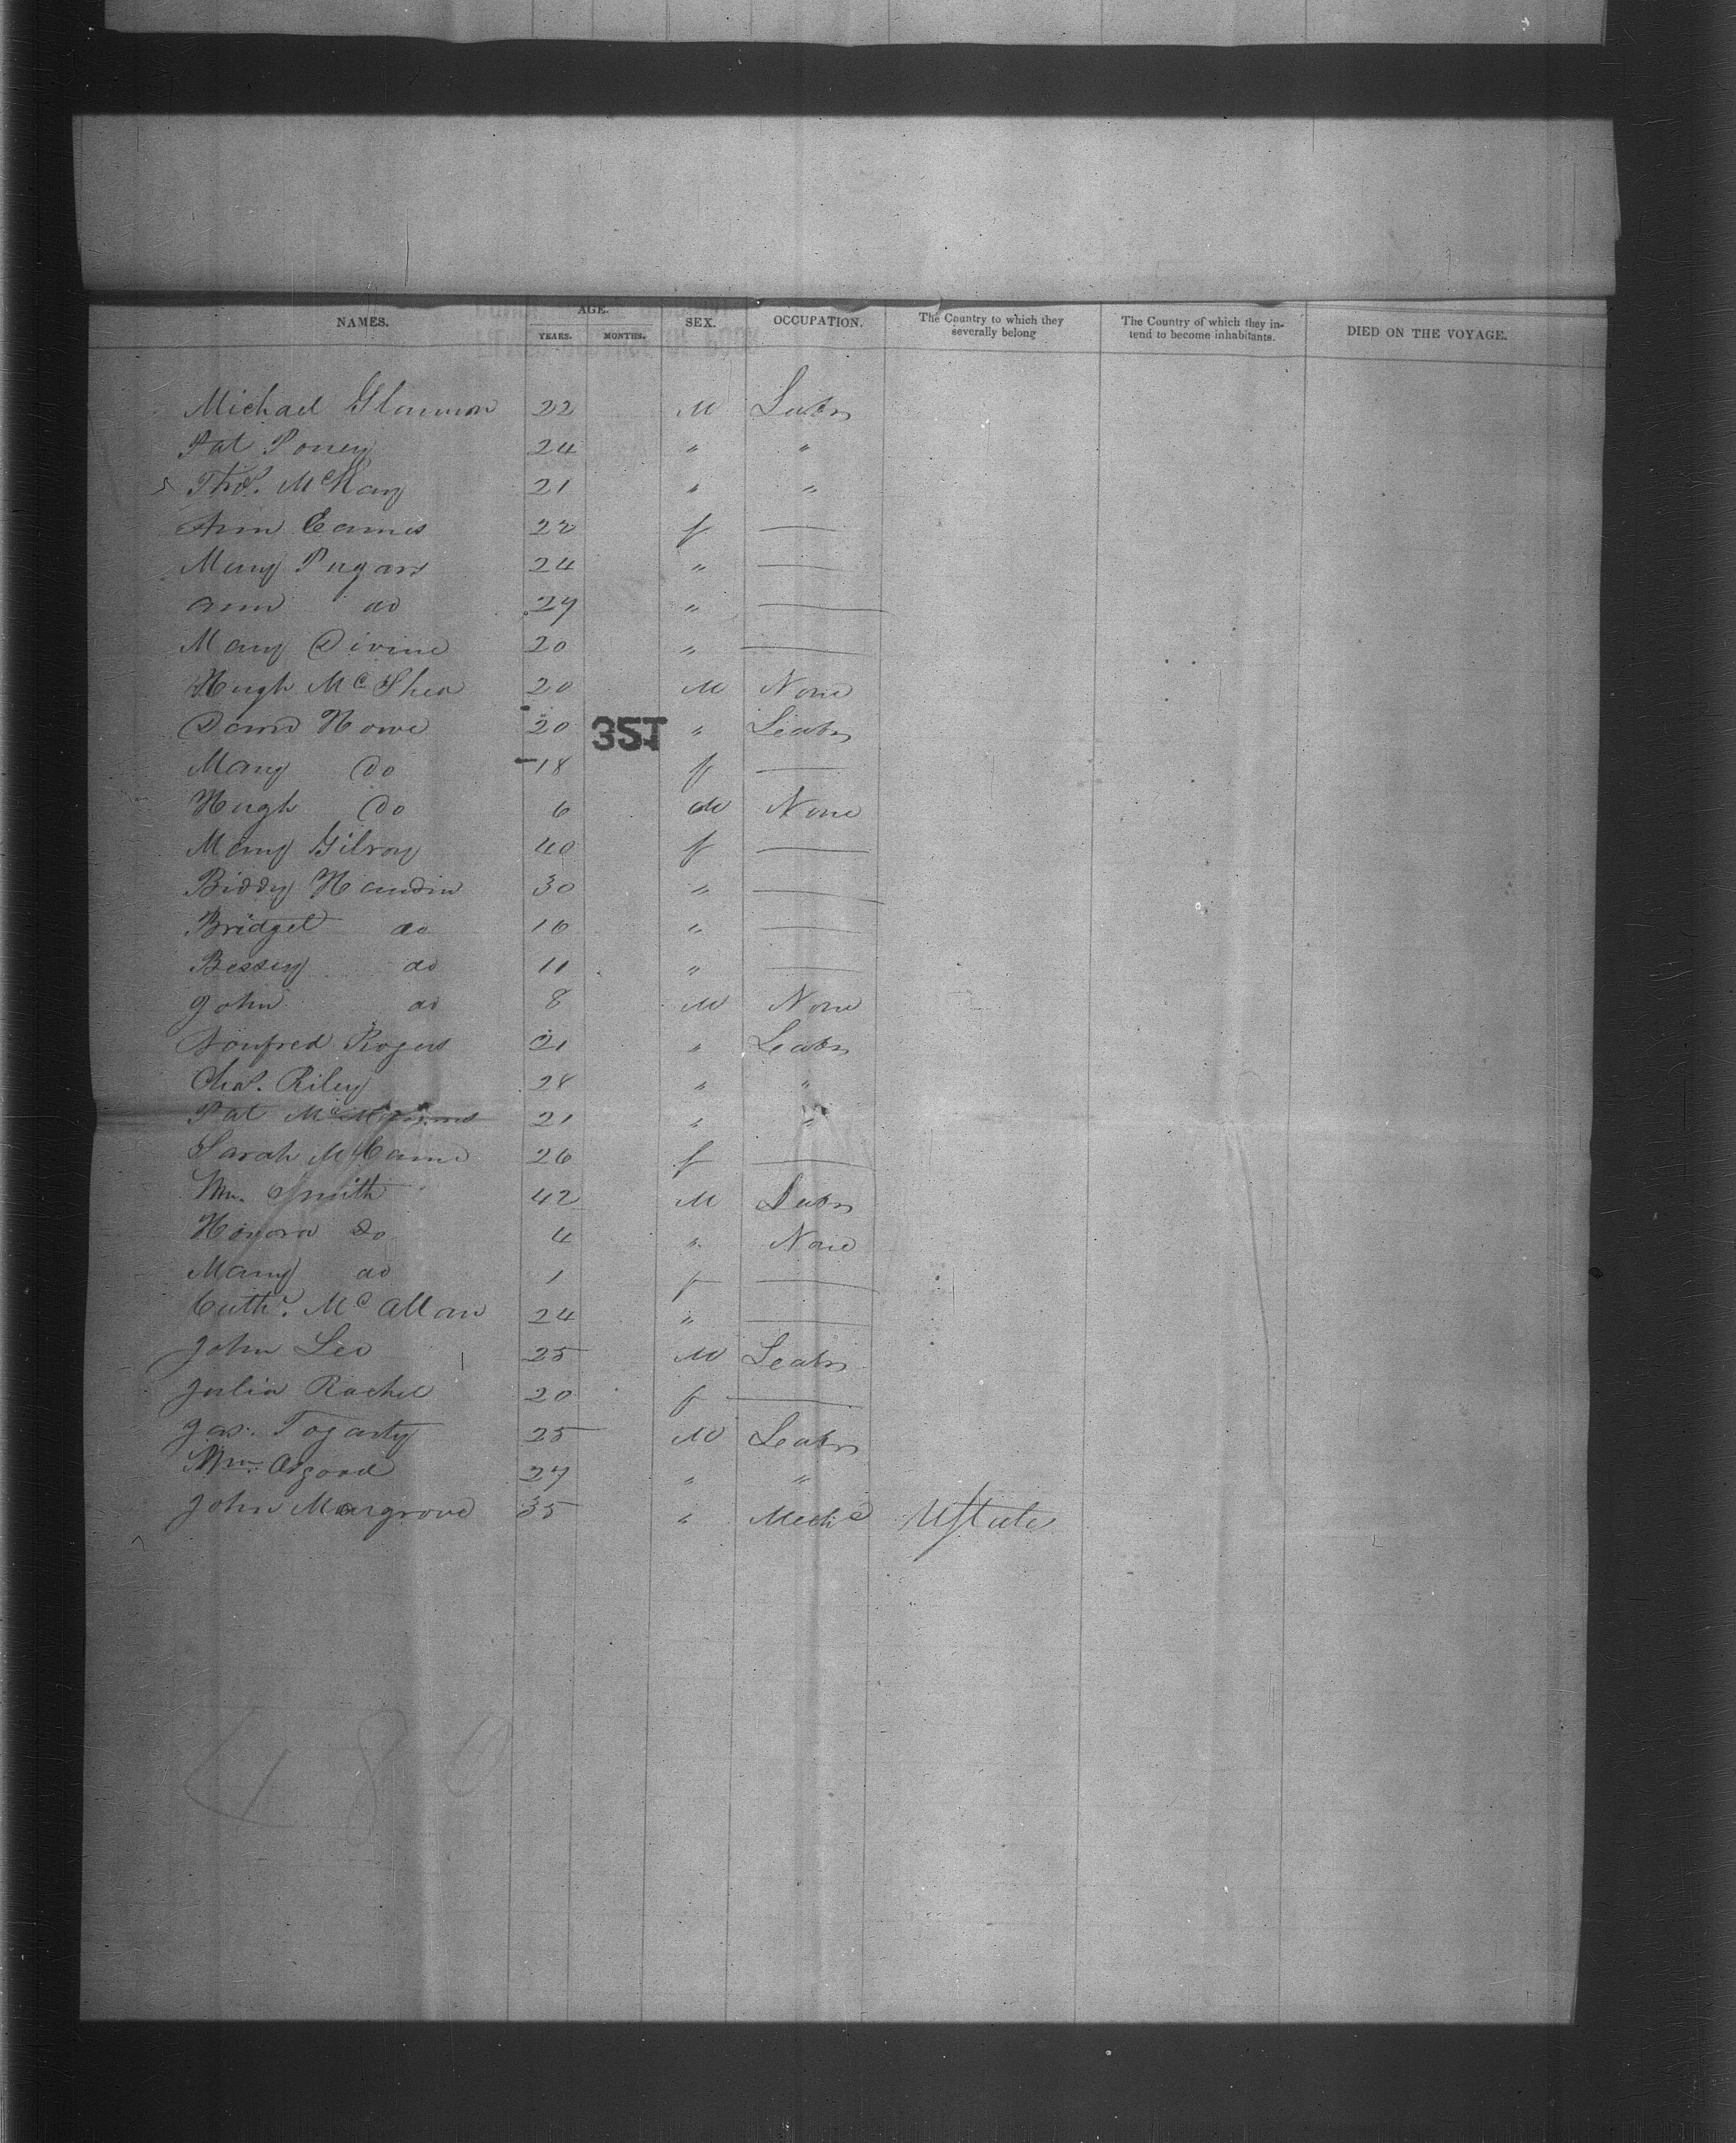 NAMES. AGE. YEARS. MONTHS. SEX. OCCUPATION. The Country to which they severally belong The Country of which they intend to become inhabitants. DIED ON THE VOYAGE.
Michael Glennon 22 M Labr
Pat 24 " "
Thos. McKay 21 " "
Ann Eames 22 f —
Mary 24 " —
Ann do 27 " —
Mary Divine 20 " —
Hugh Mc Shea 20 M None
David Howe 20 " Labr
35T
Mary Do 18 f —
Hugh Do 6 M None
Mary Gilroy 40 f —
Biddy 30 " —
Bridget do 16 " —
Bessey do 11 " —
John do 8 M None
Rogers 21 " Labr
Chas. Riley 28 " "
Pat 21 " "
Sarah McCann 26 f —
Wm. Smith 42 M Labr
Honora Do 4 " None
Mary do 1 f —
Cath. Mc Allan 24 " —
John Leo 25 M Labr
Julia Rachel 20 f —
Jas. Fogarty 25 M Labr
Wm. Osgood 27 " "
John Margrove 35 " Mechc UStates
480